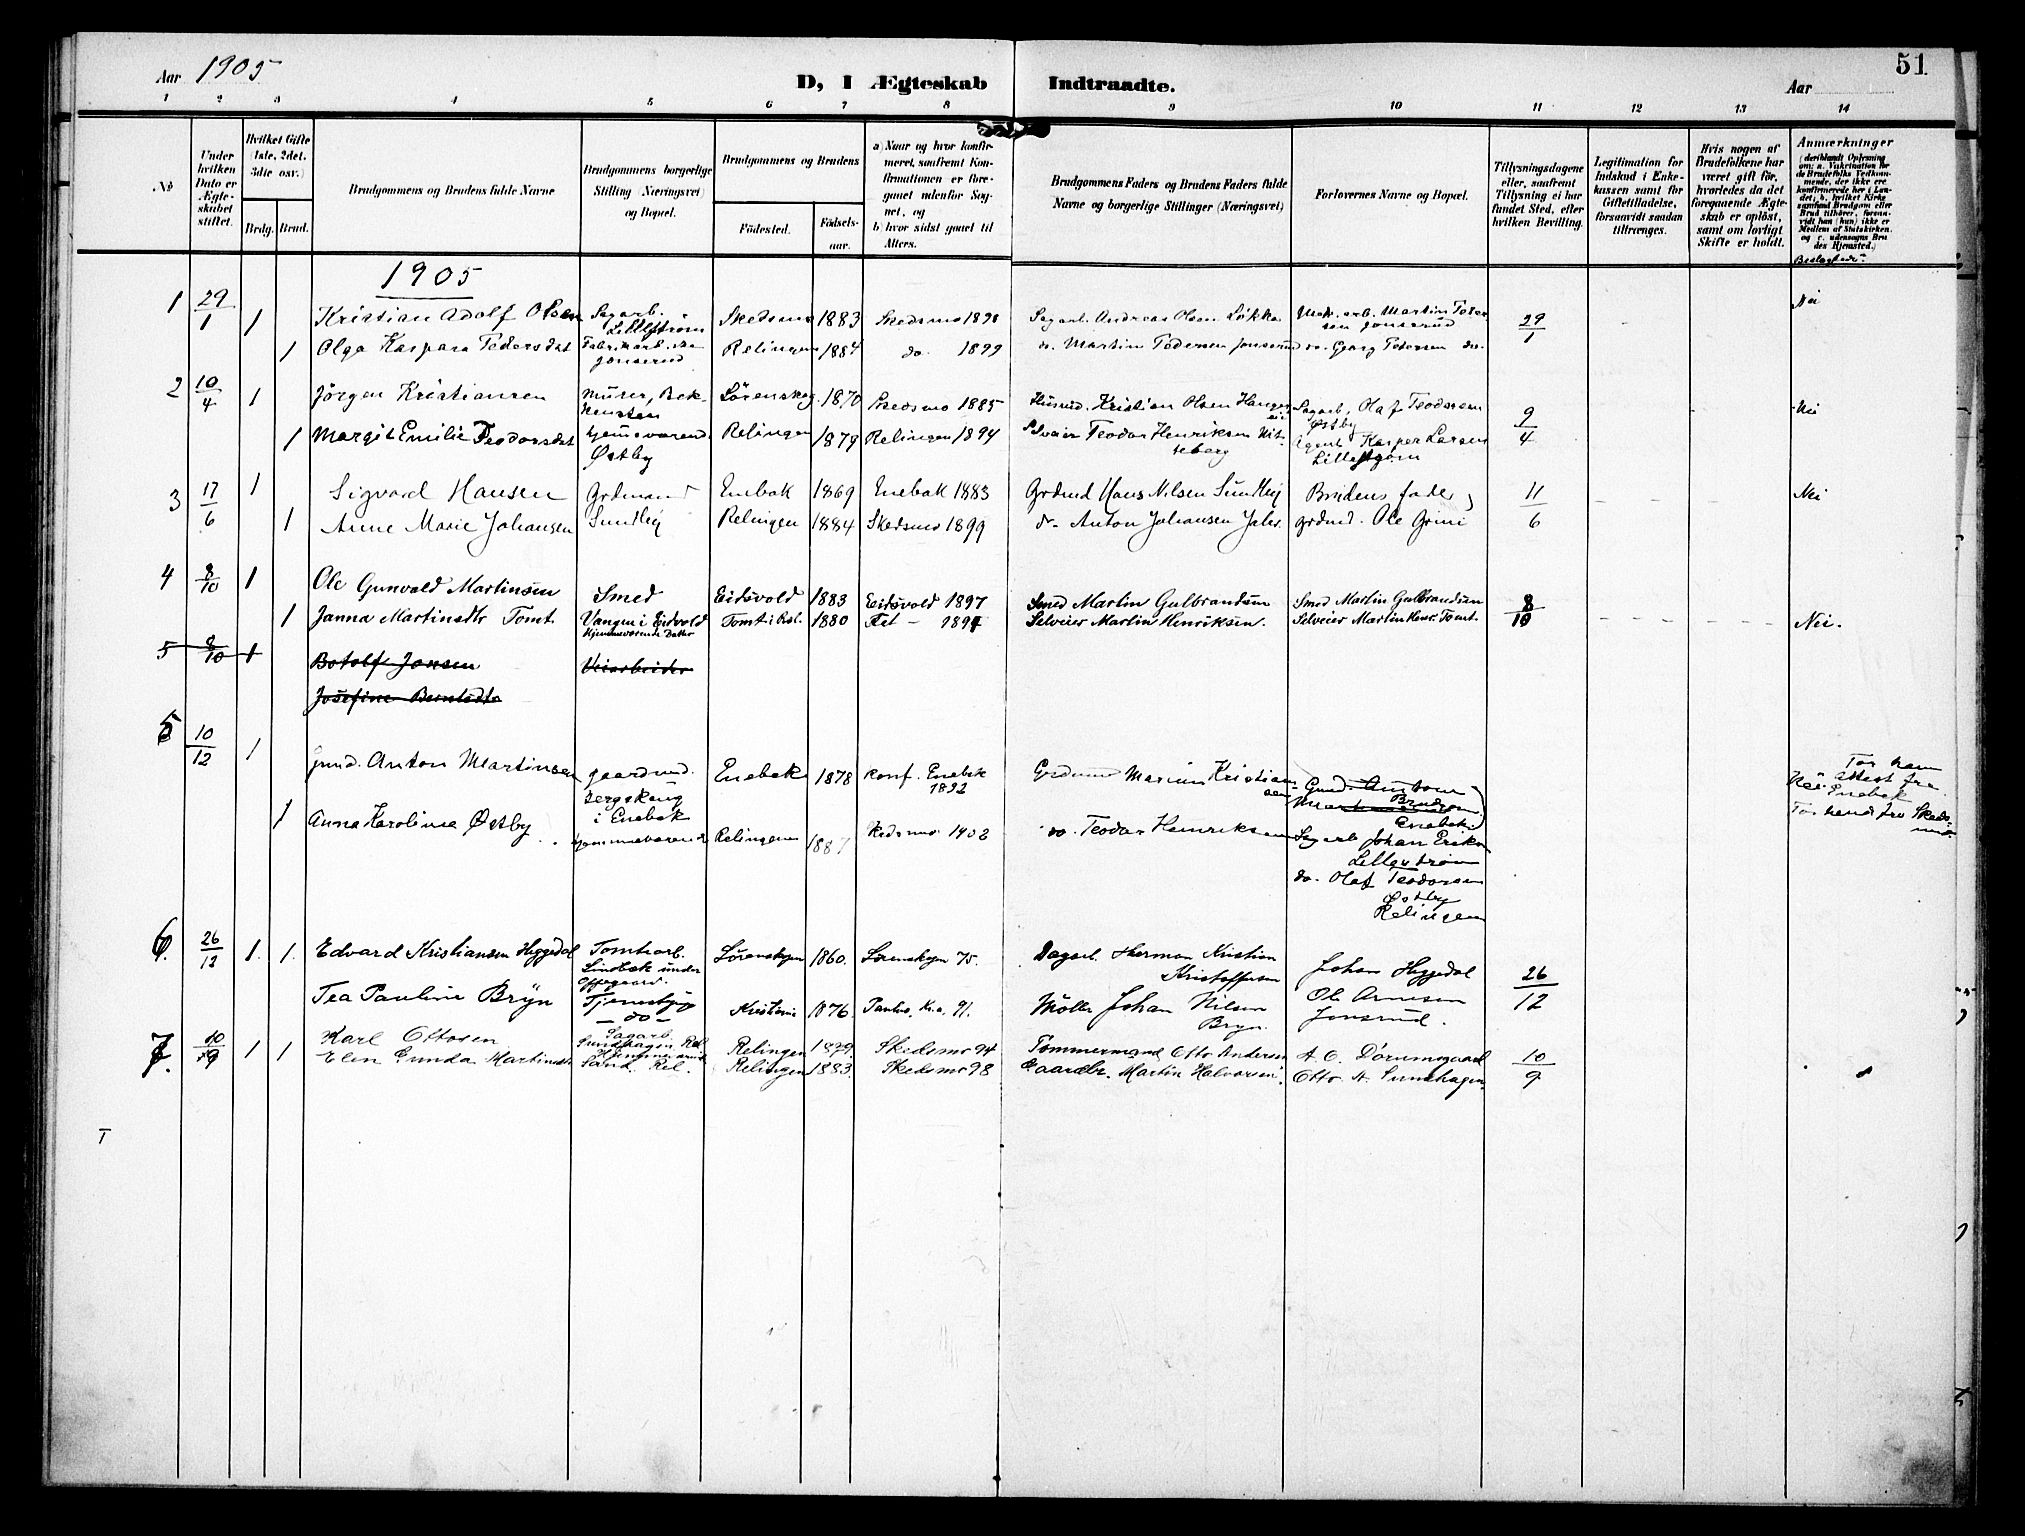 Aar 1905
D, I Ægteskab Indtraadte.
51
Aar
1 2 3 4 5 6 7 8 9 10 11 12 13 14
No
Under hvilken Dato er Ægteskabet stiftet.
Hvilket Gifte (1ste, 2det, 3die osv.)
Brdg. Brud.
Brudgommens og Brudens fulde Navne
Brudgommens borgerlige Stilling (Næringsvei) og Bopæl.
Brudgommens og Brudens
Födested. Födselsaar.
a) Naar og hvor konfirmeret, saafremt Konfirmationen er foregaaet udenfor Sognet, og
b) hvor sidst gaaet til Alters.
Brudgommens Faders og Brudens Faders fulde Navne og borgerlige Stillinger (Næringsvei)
Forlovernes Navne og Bopæl.
Tillysningsdagene eller, saafremt Tillysning ei har fundet Sted, efter hvilken Bevilling.
Legitimation for Indskud i Enkekassen samt for Giftetilladelse, forsaavidt saadan tiltrænges.
Hvis nogen af Brudefolkene har været gift før, hvorledes da det foregaaende Ægteskab er oplöst, samt om lovligt Skifte er holdt.
Anmærkninger
(deriblandt Oplysning om: a. Vakcination for de Brudefolks Vedkommende, der ikke ere konfirmerede her i Landet; b. hvilket Kirkesamfund Brudgom eller Brud tilhører, forsaavidt han (hun) ikke er Medlem af Statskirken, og c. udensogns Brudes Hjemsted.)
Beslægtede?
1905
1 29/1 1 Kristian Adolf Olsen Sagarb. Lillestrøm Skedsmo 1883 Skedsmo 1898 Sagarb. Andreas Olsen Løkka Mek. arb. Martin Pedersen Jonserud 29/1 - - Nei
1 Olga Kaspara Pedersdat Fabrikarb.ske Jonserud Relingen 1884 do. 1899 do. Martin Pedersen Jonserud do. Georg Pedersen do.
2 10/4 1 Jörgen Kristiansen Murer, Bekkensten Lörenskog 1870 Skedsmo 1885 Husmd. Kristian Olsen Hanger Sagarb. Olaf Teodorsen Østby 9/4 Nei
1 Margit Emilie Teodorsdat hjemmeværend. Østby Relingen 1879 Relingen 1894 Selveier Teodor Henriksen Nitteberg Agent Kasper Larsen Lillestrøm
3 17/6 1 Sigvard Hansen Grdmand Sundby Enebak 1869 Enebak 1883 Grdmd Hans Nilsen Sundby Brudens fader 11/6 - - - Nei
1 Anne Marie Johansen Relingen 1884 Skedsmo 1899 do. Anton Johansen grdmd. Ole Grini
4 8/10 1 Ole Gunvald Martinsen Smed Eidsvold 1883 Eidsvold 1897 Smed Martin Gulbrandsen Smed Martin Gulbrandsen 8/10
1 Janna Martinsdtr Tomt. Vangen i Eidsvold Hjemmeværende Datter Tomt i Rel. 1880 Fet - 1894 Selveier Martin Henriksen. Selveier Martin Henr. Tomt. - - - - - Nei.
5 8/10 1 Botolf Jonsen Veiarbeider
Josefine Berntsdtr
5 10/12 1 Grmd. Anton Martinsen gaardmd. Bergskaug i Enebak Enebak 1878 Konf. Enebak 1892 Grdmand Marius Kristiansen Grmd. Anton Brudgom Enebak Nei For ham attest fra Enebak
1 Anna Karoline Østby hjemmeværende Relingen 1887 Skedsmo 1902 do. Teodor Henriksen Sagarb Johan Eriksen Lillestrøm For hende fra Skedsmo.
do. Olaf Teodorsen Østby Relingen
6. 26/12 1. 1. Edvard Kristiansen Heggedal Tomtearb. Lindbak under Oppegaard. Lørenskogen 1860. Lørenskogen 75. Dagarb. Herman Kristian Kristoffersen Johan Heggedal 26/12
Tea Pauline Bryn Tjenestepige - do - Kristiania 1876 Paulus, Kr.a. 91. Møller Johan Nilsen Bryn. Ole Arnesen Jonsrud.
7. 10/9 1 1 Karl Ottosen Sagarb. Sundhagen Rel. Relingen 1879. Skedsmo 94 Tømmermand Otto Andersen A. O. Dørumsgaard 10/9
Elen Gunda Martinsdtr Hjemmeværende Sand. Rel. Relingen 1883. Skedsmo 98 Gaardbr. Martin Halvorsen. Otto A. Sundhagen.